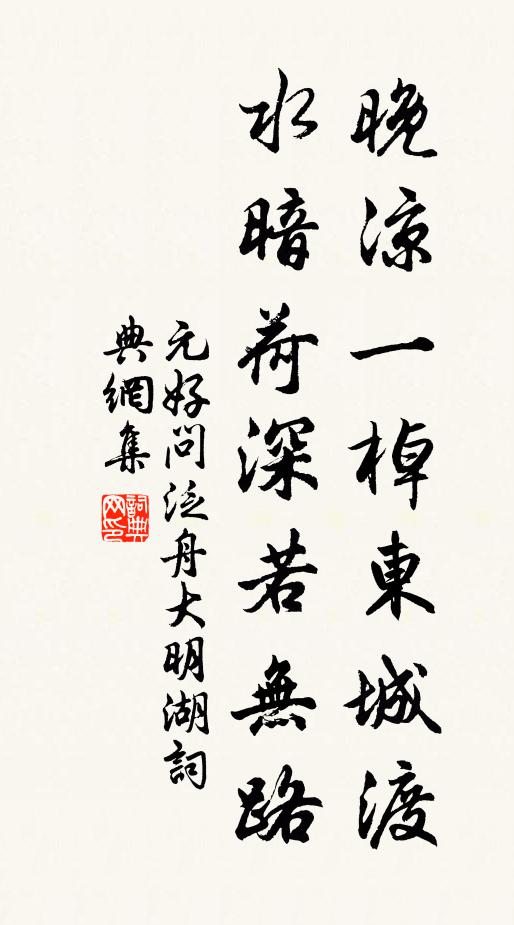 晚涼一棹東城渡
水暗荷深若無路
元好問泛舟大明湖詞
典網集
詞典網印